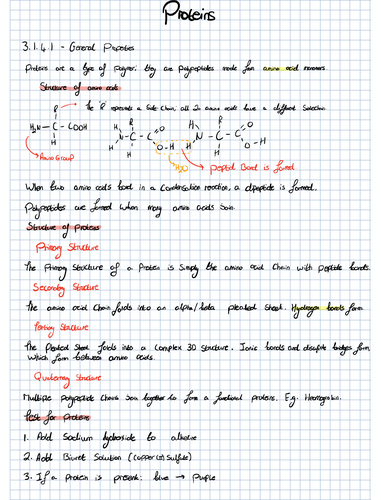 Proteins
3.1.4.1 - General Properties
Proteins are a type of Polymer, they are Polypeptides made from amino acid monomers.
Structure of amino acids
R
The 'R' represents a Side Chain, all 20 amino acids have a different
H₂N - C - COOH
H
Amino Group
H N - C - C O O - H
H R H
H N - C - C O O - H
H R H
H₂O
Peptide Bond is formed
When two amino acids bond in a Condensation reaction, a dipeptide is formed.
Polypeptides are formed when many amino acids Join.
Structure of Proteins
Primary Structure
The Primary Structure of a Protein is Simply the amino acid Chain with peptide bonds.
Secondary Structure
The amino acid Chain folds into an alpha/beta pleated sheet. Hydrogen bonds form
Tertiary Structure
The Pleated Sheet folds into a Complex 3D Structure. Ionic bonds and disulfide bridges form
Which form between amino acids.
Quaternary Structure
Multiple Polypeptide Chains Join together to form a functional protein. E.g. Haemoglobin.
Test for Proteins
1. Add Sodium hydroxide to
2. Add Biuret Solution (Copper(II) Sulfate)
3. If a Protein is present: blue → Purple